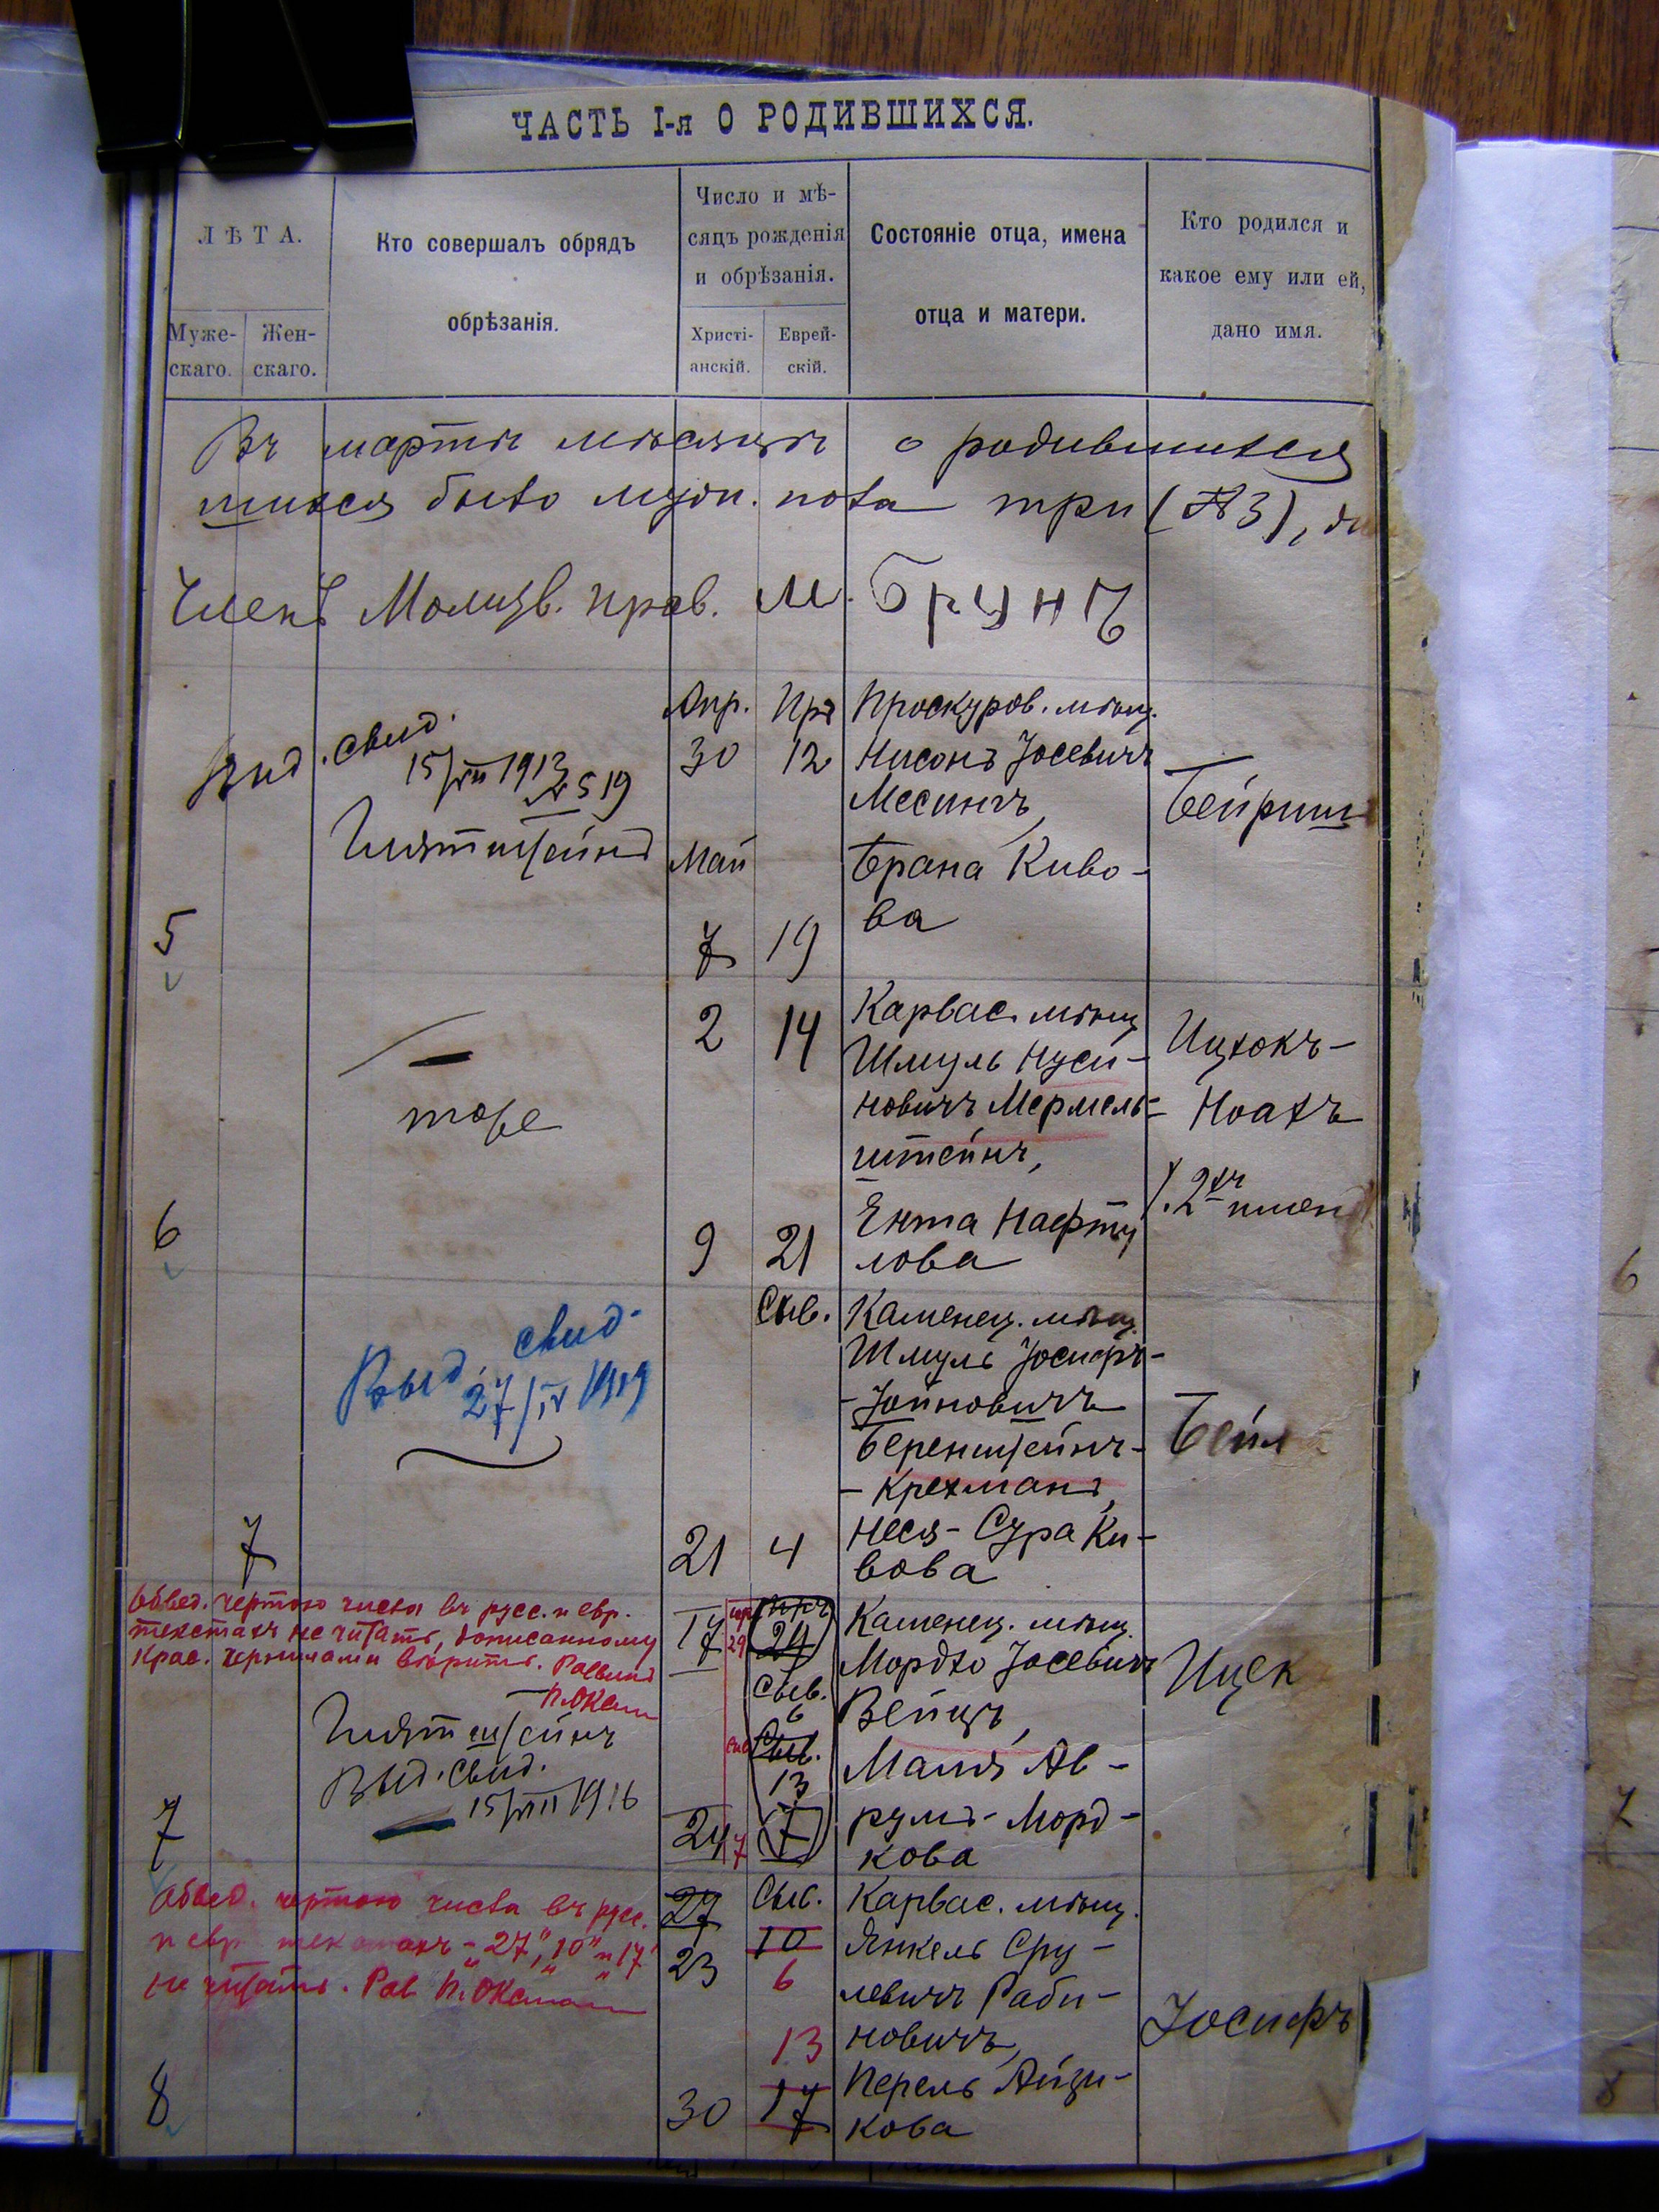 ЧАСТЬ I-я О РОДИВШИХСЯ.
ЛѢТА.
Муже-
скаго.
Жен-
скаго.
Кто совершалъ обрядъ
обрѣзанія.
Число и мѣ-
сяцъ рожденія
и обрѣзанія.
Христі-
анскій.
Еврей-
скій.
Состояніе отца, имена
отца и матери.
Кто родился и
какое ему или ей,
дано имя.
Въ мартѣ мѣсяцѣ о родившихся
шихся было муж. пола три (№3),
Членъ Молитв. прав. М. Брунъ
5
Выд. свид.
15/VII 1913
№ 519
Глятштейнъ
Апр.
30
Май
7
Ира
12
19
Проскуров. мѣщ.
Нисонъ Іосевичъ
Месингъ,
Брана Киво-
ва
Бейриш
6
—
тоже
2
9
14
21
Карвас. мѣщ.
Шмуль Нуси-
новичъ Мермель-
штейнъ,
Ента Нафту
лова
Ицхокъ-
Ноахъ
/.2хъ имен
7
Выд. свид.
27/IV 1919
21
Сыв.
4
Каменец. мѣщ.
Шмуль Іосифъ-
-Іойновичъ
Беренштейнъ-
-Крехманъ,
Неся-Сура Ки-
вова
Бейл
Обвед. чертою числа въ русс. и евр.
текстахъ не читать, дописанному
крас. чернилами вѣрить. Раввинъ
П. Окс
7
Глятштейнъ
Выд. свид.
15/VIII 1916
17
24
ир
29
сив
7
Ира
24
Сыв.
6
Сыв.
13
7
Каменец. мѣщ.
Мордхо Іосевичъ
Вейцъ,
Маля Ав-
румъ-Морд-
кова
Ицек
Обвед. чертою числа въ русс.
и евр. текстахъ - „27", „10" и „17"
не читать. Рав. П. Окс
8
27
23
30
Сыв.
10
6
13
17
Карвас. мѣщ.
Янкель Сру-
левичъ Раби-
новичъ,
Перель Айзи-
кова
Іосифъ
6
7
8